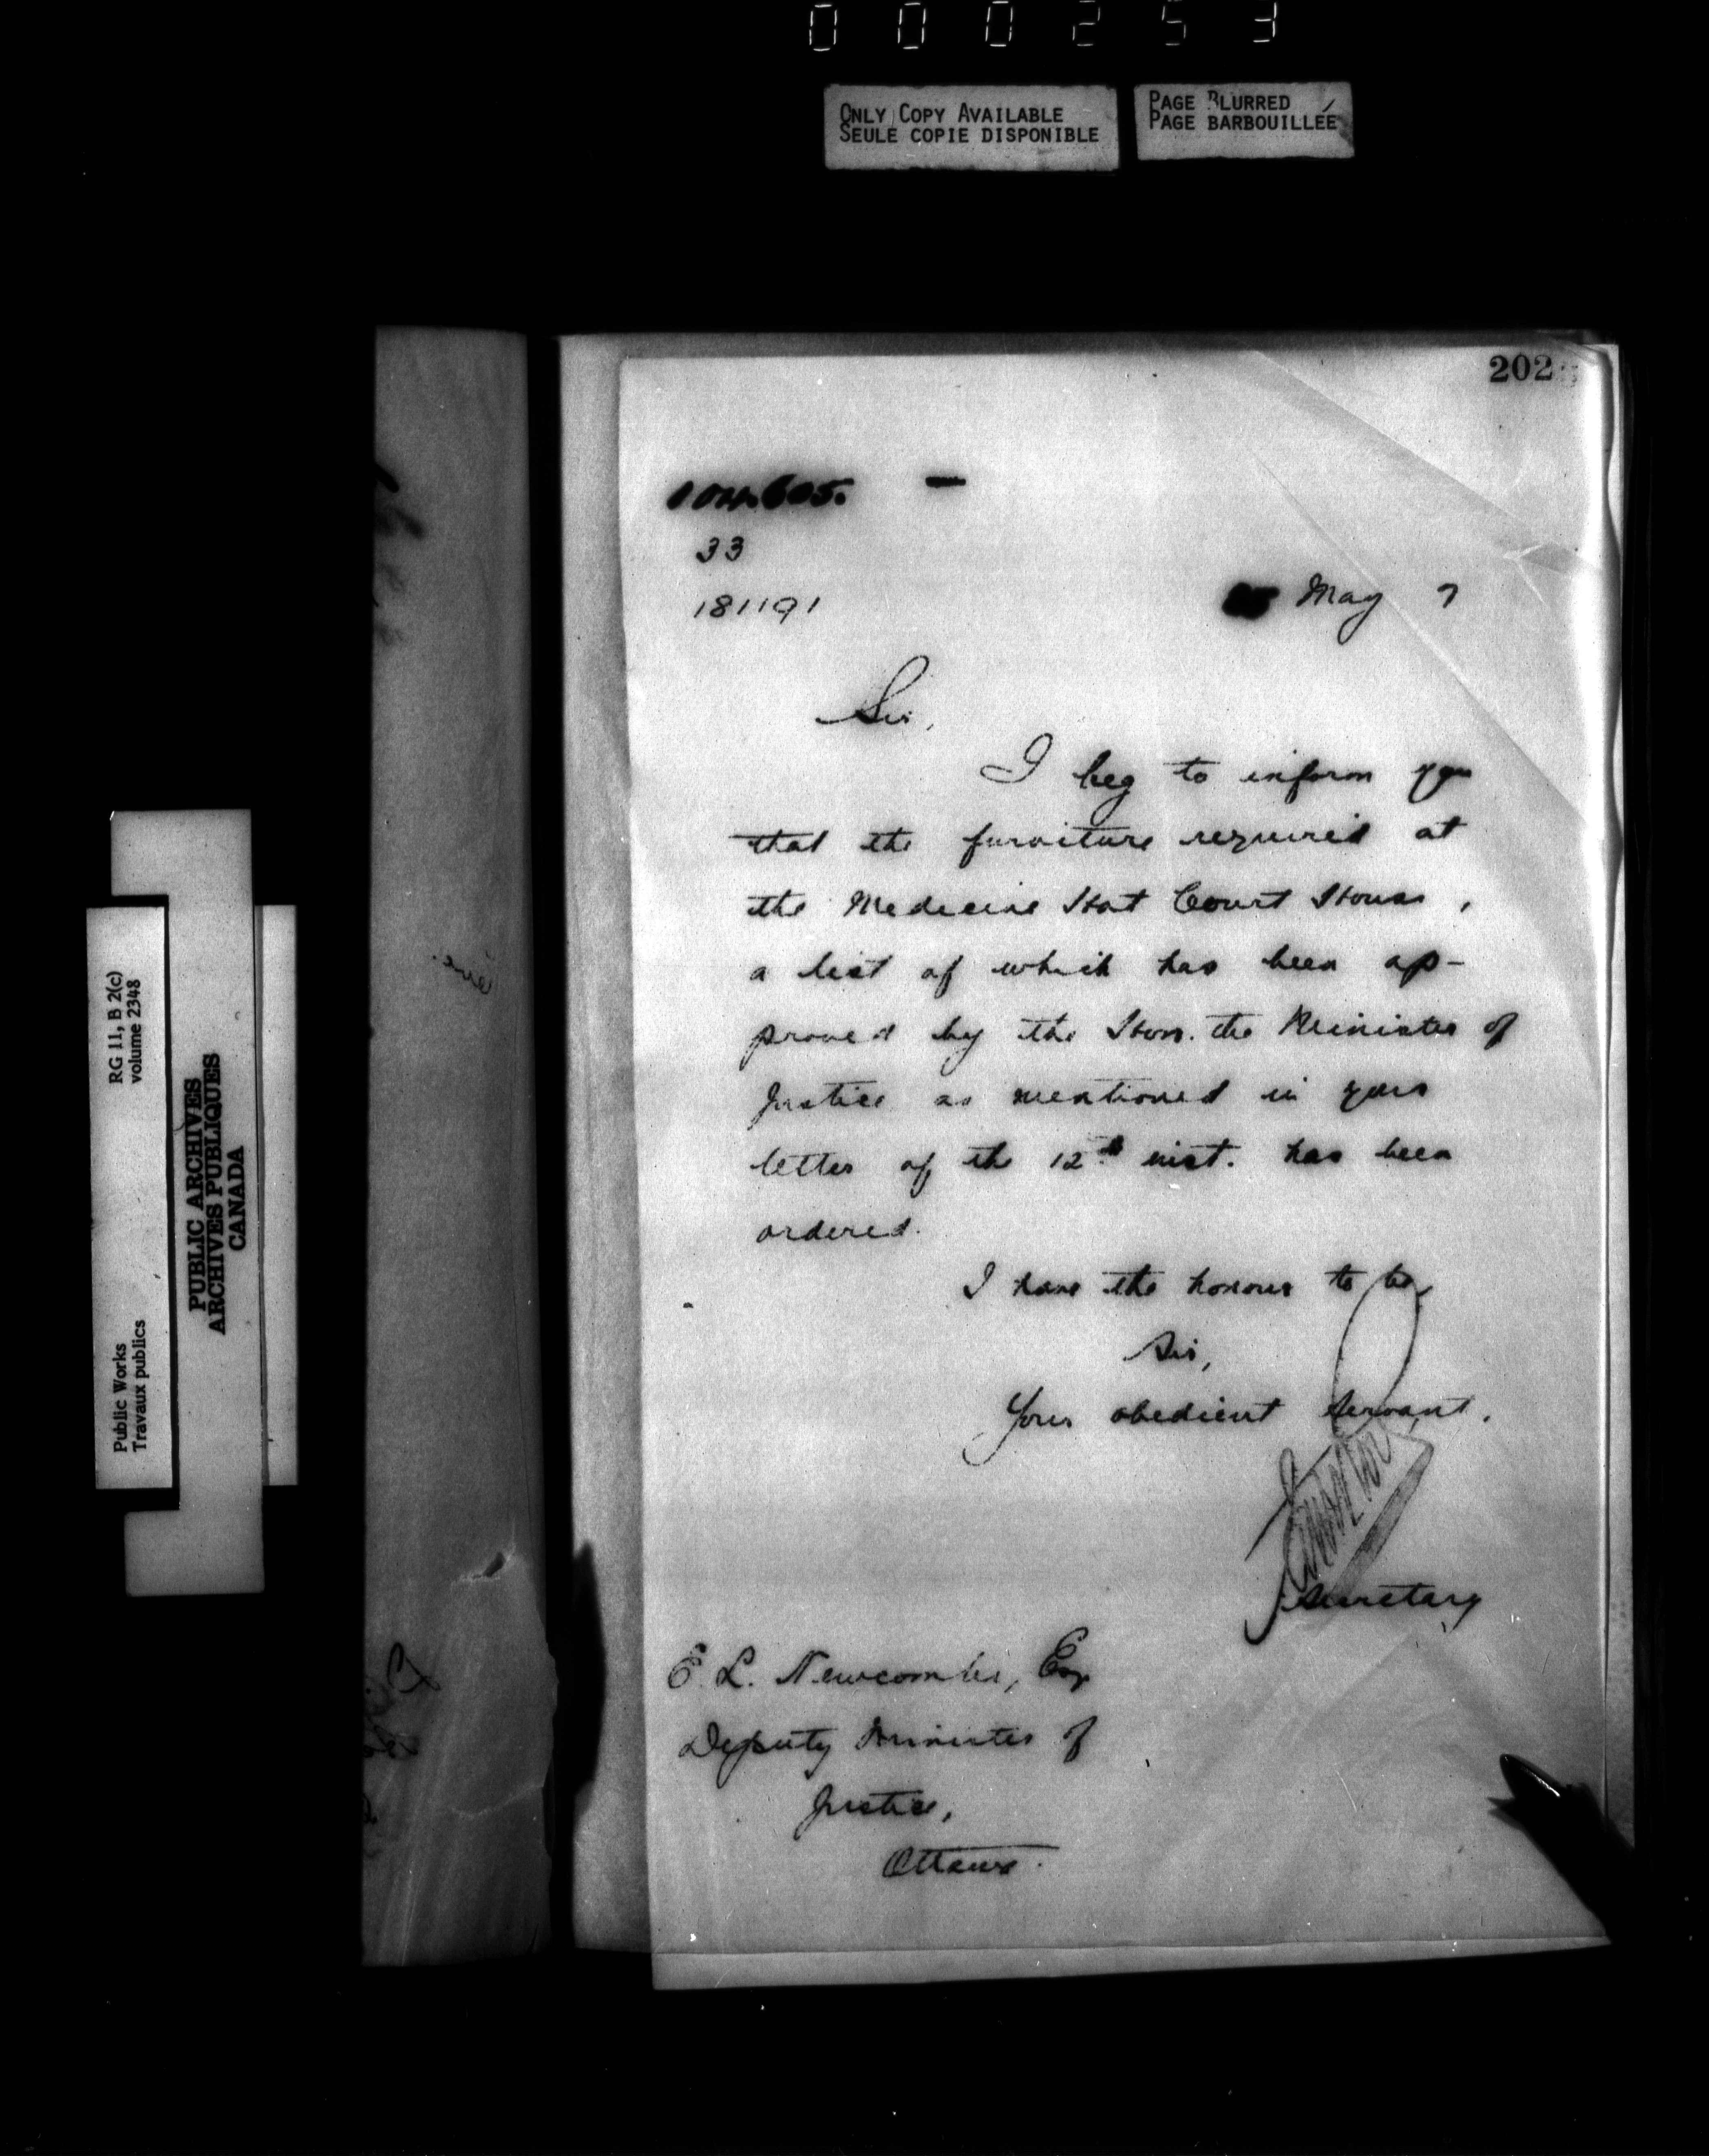 000253
ONLY COPY AVAILABLE
SEULE COPIE DISPONIBLE
PAGE BLURRED
PAGE BARBOUILLÉE
RG 11, B 2(c)
volume 2348
Public Works
Travaux publics
PUBLIC ARCHIVES
ARCHIVES PUBLIQUES
CANADA
202
33
181191
May 7
Sir,
I beg to inform you
that the furniture required at
the Medicine Hat Court House,
a list of which has been ap-
proved by the Hon. the Minister of
Justice as mentioned in your
letter of the 12th inst. has been
ordered.
I have the honour to be,
Sir,
Your obedient servant.
Secretary
E. L. Newcombe, Esq
Deputy Minister of
Justice,
Ottawa.